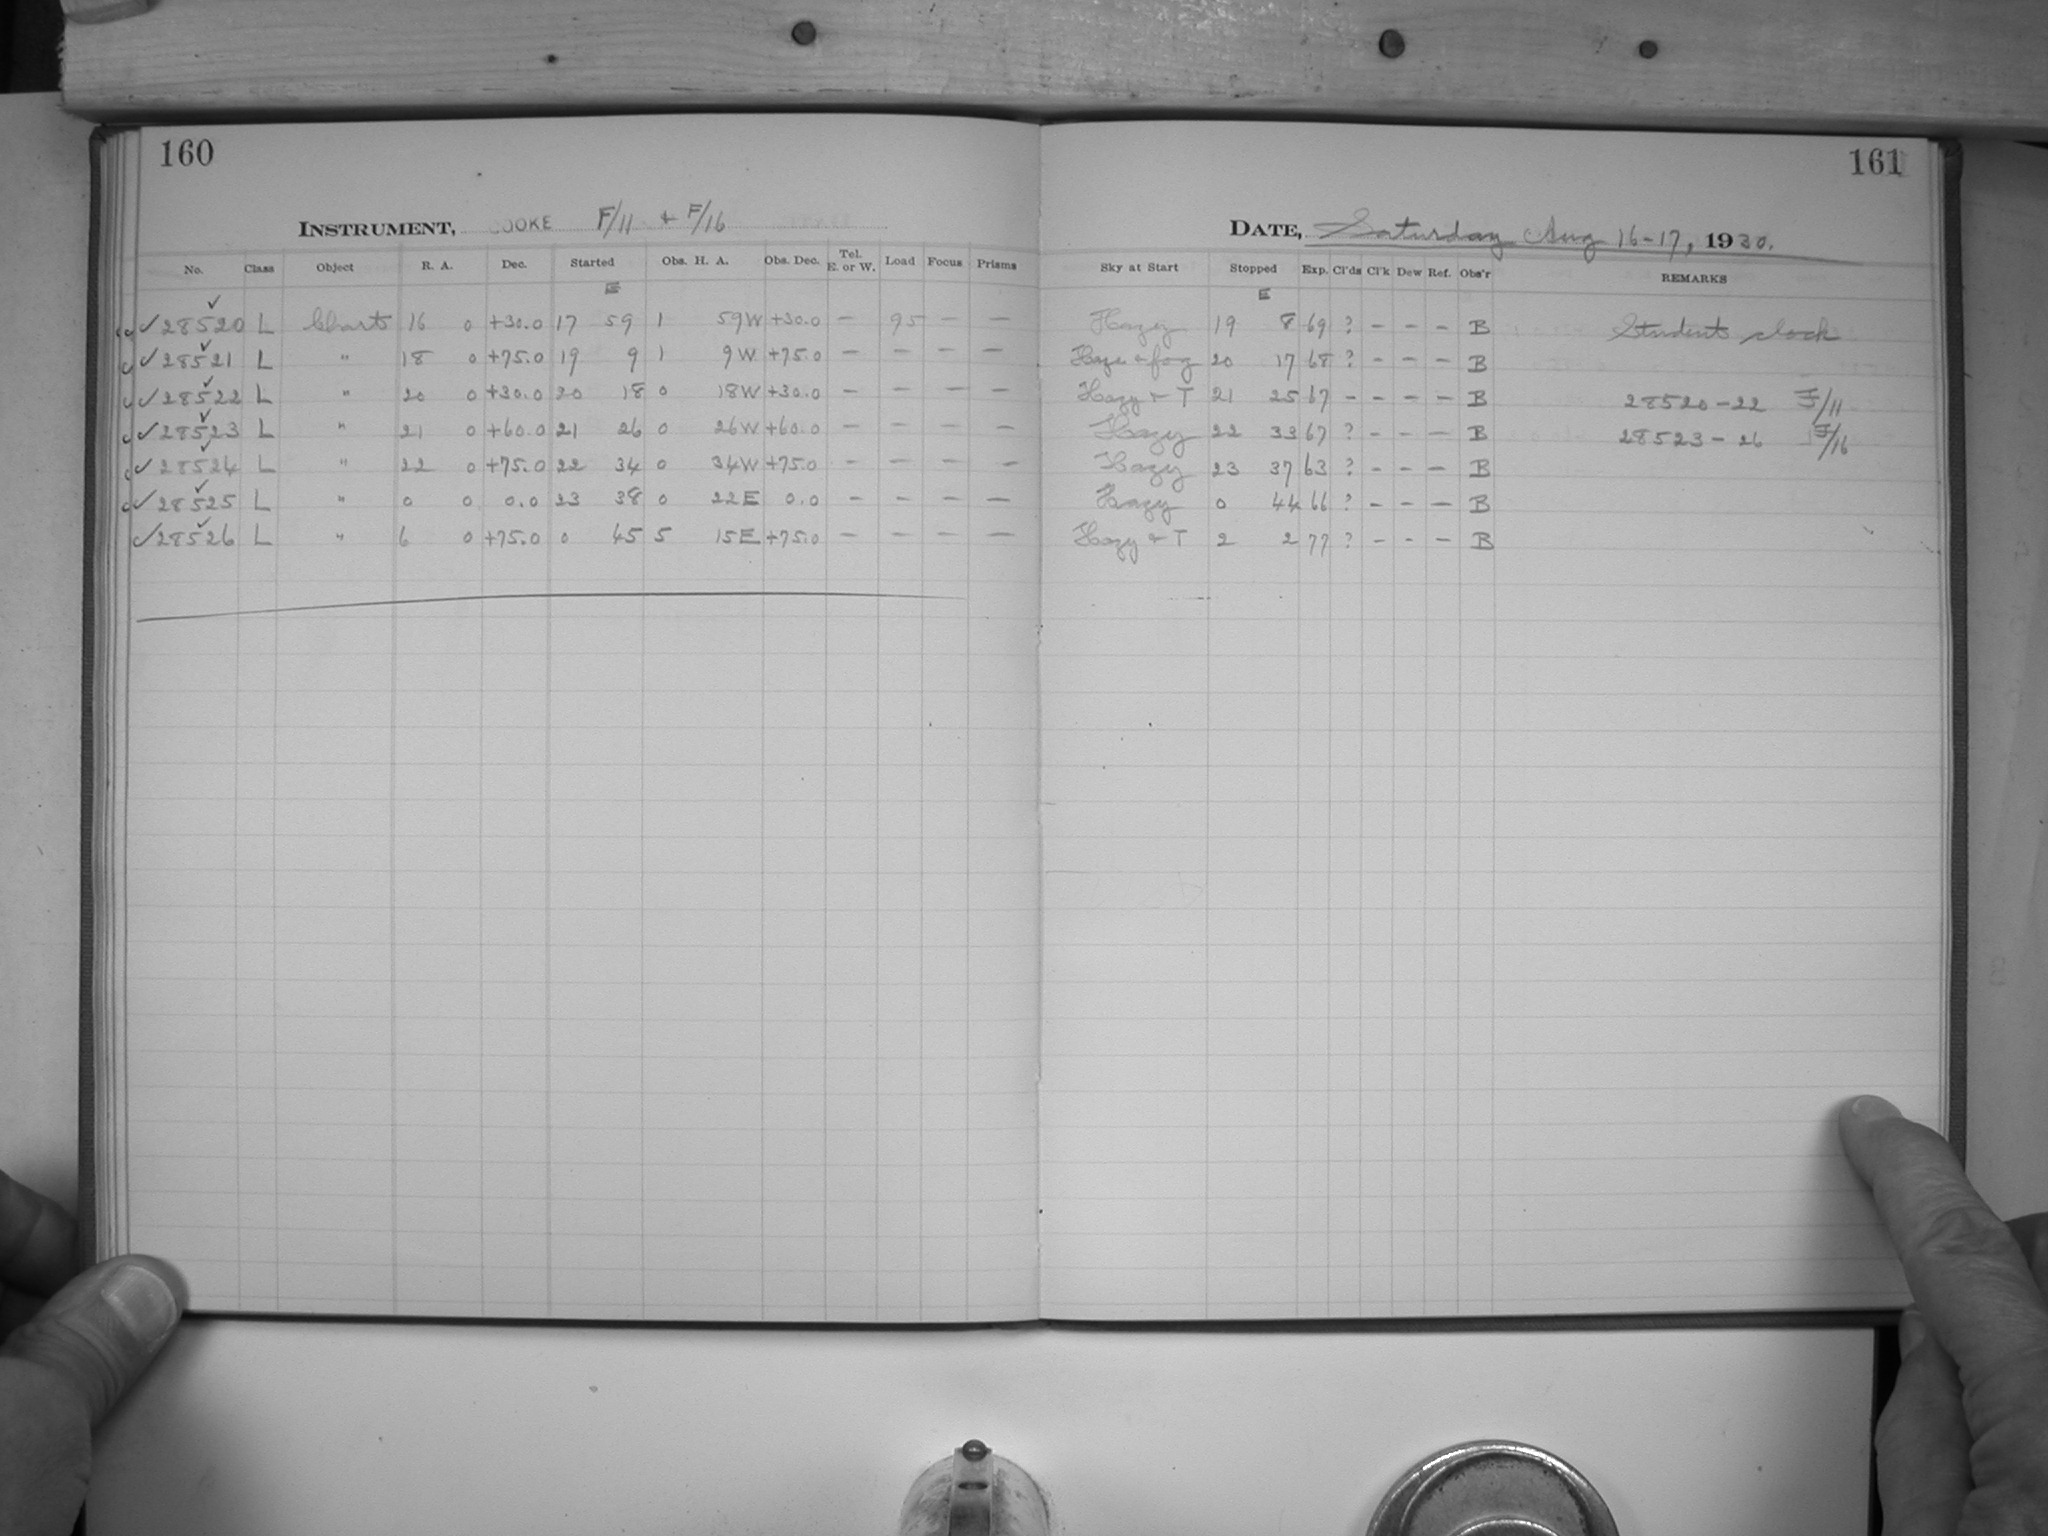 160
INSTRUMENT, COOKE F/11 + F/16
No. Class Object R. A. Dec. Started Obs. H. A. Obs. Dec. Tel. E. or W. Load Focus Prisms
E
✓28520 L Charts 16 0 +30.0 17 59 1 59W +30.0 — 95 — —
✓28521 L " 18 0 +75.0 19 9 1 9W +75.0 — — — —
✓28522 L " 20 0 +30.0 20 18 0 18W +30.0 — — — —
✓28523 L " 21 0 +60.0 21 26 0 26W +60.0 — — — —
✓28524 L " 22 0 +75.0 22 34 0 34W +75.0 — — — —
✓28525 L " 0 0 0.0 23 38 0 22E 0.0 — — — —
✓28526 L " 6 0 +75.0 0 45 5 15E +75.0 — — — —
161
DATE, Saturday Aug 16-17, 1930.
Sky at Start Stopped Exp. Cl'ds Cl'k Dew Ref. Obs'r REMARKS
E
Hazy 19 8 69 ? — — — B Student clock
Haze + fog 20 17 68 ? — — — B
Hazy + T 21 25 67 — — — — B 28520-22 F/11
Hazy 22 33 67 ? — — — B 28523-26 F/16
Hazy 23 37 63 ? — — — B
Hazy 0 44 66 ? — — — B
Hazy + T 2 2 77 ? — — — B